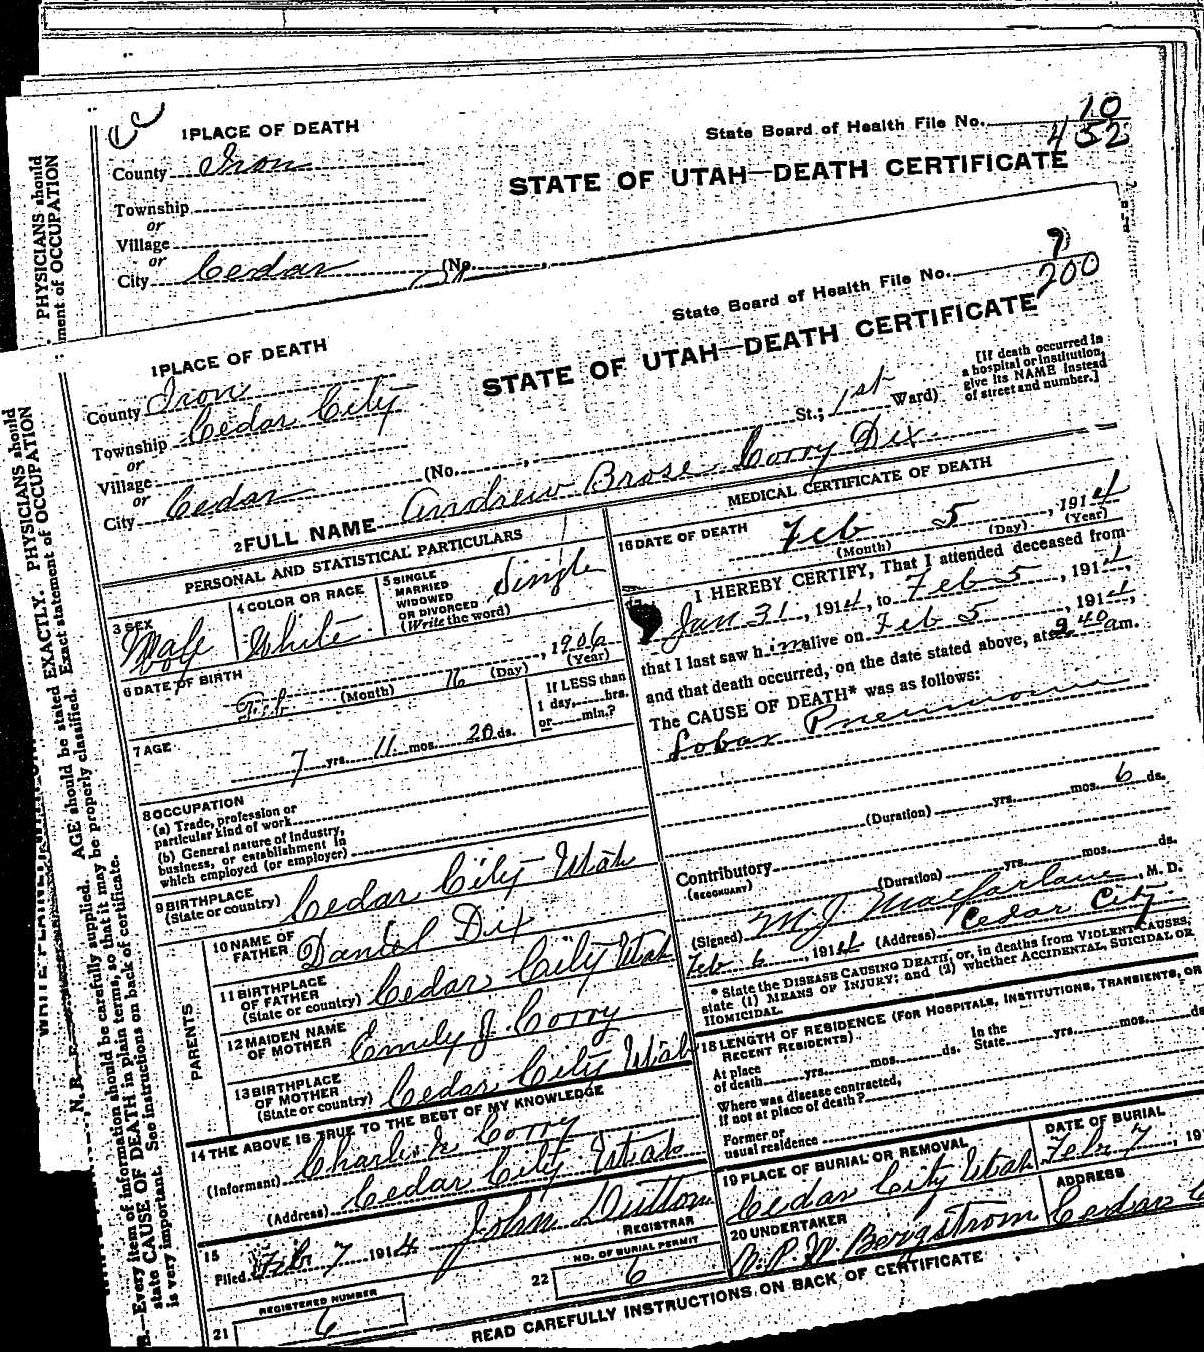 1 PLACE OF DEATH
State Board of Health File No. 10
452
County Iron
STATE OF UTAH—DEATH CERTIFICATE
Township
or
Village
or
City Cedar (No.
PHYSICIANS should
ment of OCCUPATION
1 PLACE OF DEATH
State Board of Health File No. 9
200
STATE OF UTAH—DEATH CERTIFICATE
County Iron
Township Cedar City
or
Village
or
City Cedar (No. St.; 1st Ward)
[If death occurred in
a hospital or institution,
give its NAME instead
of street and number.]
2 FULL NAME Andrew Brose Corry Dix
PERSONAL AND STATISTICAL PARTICULARS
3 SEX
Male
4 COLOR OR RACE
White
5 SINGLE
MARRIED
WIDOWED
OR DIVORCED
(Write the word)
Single
6 DATE OF BIRTH
Feb 16, 1906
(Month) (Day) (Year)
7 AGE
7 yrs. 11 mos. 20 ds.
If LESS than
1 day, hrs.
or min.?
8 OCCUPATION
(a) Trade, profession or
particular kind of work
(b) General nature of industry,
business, or establishment in
which employed (or employer)
9 BIRTHPLACE
(State or country) Cedar City Utah
PARENTS
10 NAME OF
FATHER Daniel Dix
11 BIRTHPLACE
OF FATHER
(State or country) Cedar City Utah
12 MAIDEN NAME
OF MOTHER Emily J. Corry
13 BIRTHPLACE
OF MOTHER
(State or country) Cedar City Utah
14 THE ABOVE IS TRUE TO THE BEST OF MY KNOWLEDGE
(Informant) Corry
(Address) Cedar City Utah
15
Filed Feb 7 1914 John Dutton
REGISTRAR
21 REGISTERED NUMBER
6
22 NO. OF BURIAL PERMIT
6
MEDICAL CERTIFICATE OF DEATH
16 DATE OF DEATH
Feb 5, 1914
(Month) (Day) (Year)
I HEREBY CERTIFY, That I attended deceased from
Jan 31, 1914, to Feb 5, 1914
that I last saw him alive on Feb 5, 1914,
and that death occurred, on the date stated above, at 2 40 am.
The CAUSE OF DEATH* was as follows:
Lobar Pneumonia
(Duration) yrs. mos. 6 ds.
Contributory
(SECONDARY)
(Duration) yrs. mos. ds.
(Signed) M J Macfarlane, M. D.
Feb 6, 1914 (Address) Cedar City
* State the DISEASE CAUSING DEATH, or, in deaths from VIOLENT CAUSES,
state (1) MEANS OF INJURY; and (2) whether ACCIDENTAL, SUICIDAL OR
HOMICIDAL.
18 LENGTH OF RESIDENCE (FOR HOSPITALS, INSTITUTIONS, TRANSIENTS, OR
RECENT RESIDENTS)
At place
of death yrs. mos. ds.
In the
State yrs. mos. ds
Where was disease contracted,
if not at place of death?
Former or
usual residence
19 PLACE OF BURIAL OR REMOVAL
Cedar City Utah
DATE OF BURIAL
Feb 7, 191
20 UNDERTAKER
Bergstrom
ADDRESS
Cedar C
READ CAREFULLY INSTRUCTIONS ON BACK OF CERTIFICATE
B.—Every item of information should be carefully supplied. AGE should be stated EXACTLY. PHYSICIANS should
state CAUSE OF DEATH in plain terms, so that it may be properly classified. Exact statement of OCCUPATION
is very important. See instructions on back of certificate.